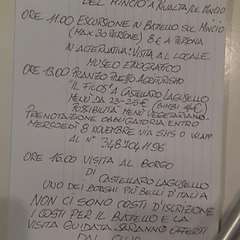 DEL MINCIO A RIVALTA SUL MINCIO
ORE 11.00 ESCURSIONE IN BATTELLO SUL MINCIO
(MAX 30 PERSONE) 8€ A PERSONA
IN ALTERNATIVA: VISITA AL LOCALE
MUSEO ETNOGRAFICO
ORE 13.00 PRANZO PRESSO AGRITURISMO
IL FILOS' A CASTELLARO LAGUSELLO
MENÙ DA 23-25€ (BIMBI
POSSIBILITÀ MENÙ VEGETARIANO
PRENOTAZIONE OBBLIGATORIA ENTRO
MERCOLEDÌ 8 NOVEMBRE VIA SMS O
AL N°
ORE 16.00 VISITA AL BORGO
DI
CASTELLARO LAGUSELLO
UNO DEI BORGHI PIÙ BELLI D'ITALIA
NON CI SONO COSTI D'ISCRIZIONE
I COSTI PER IL BATTELLO E LA
VISITA GUIDATA SARANNO OFFERTI
DAL CLUB